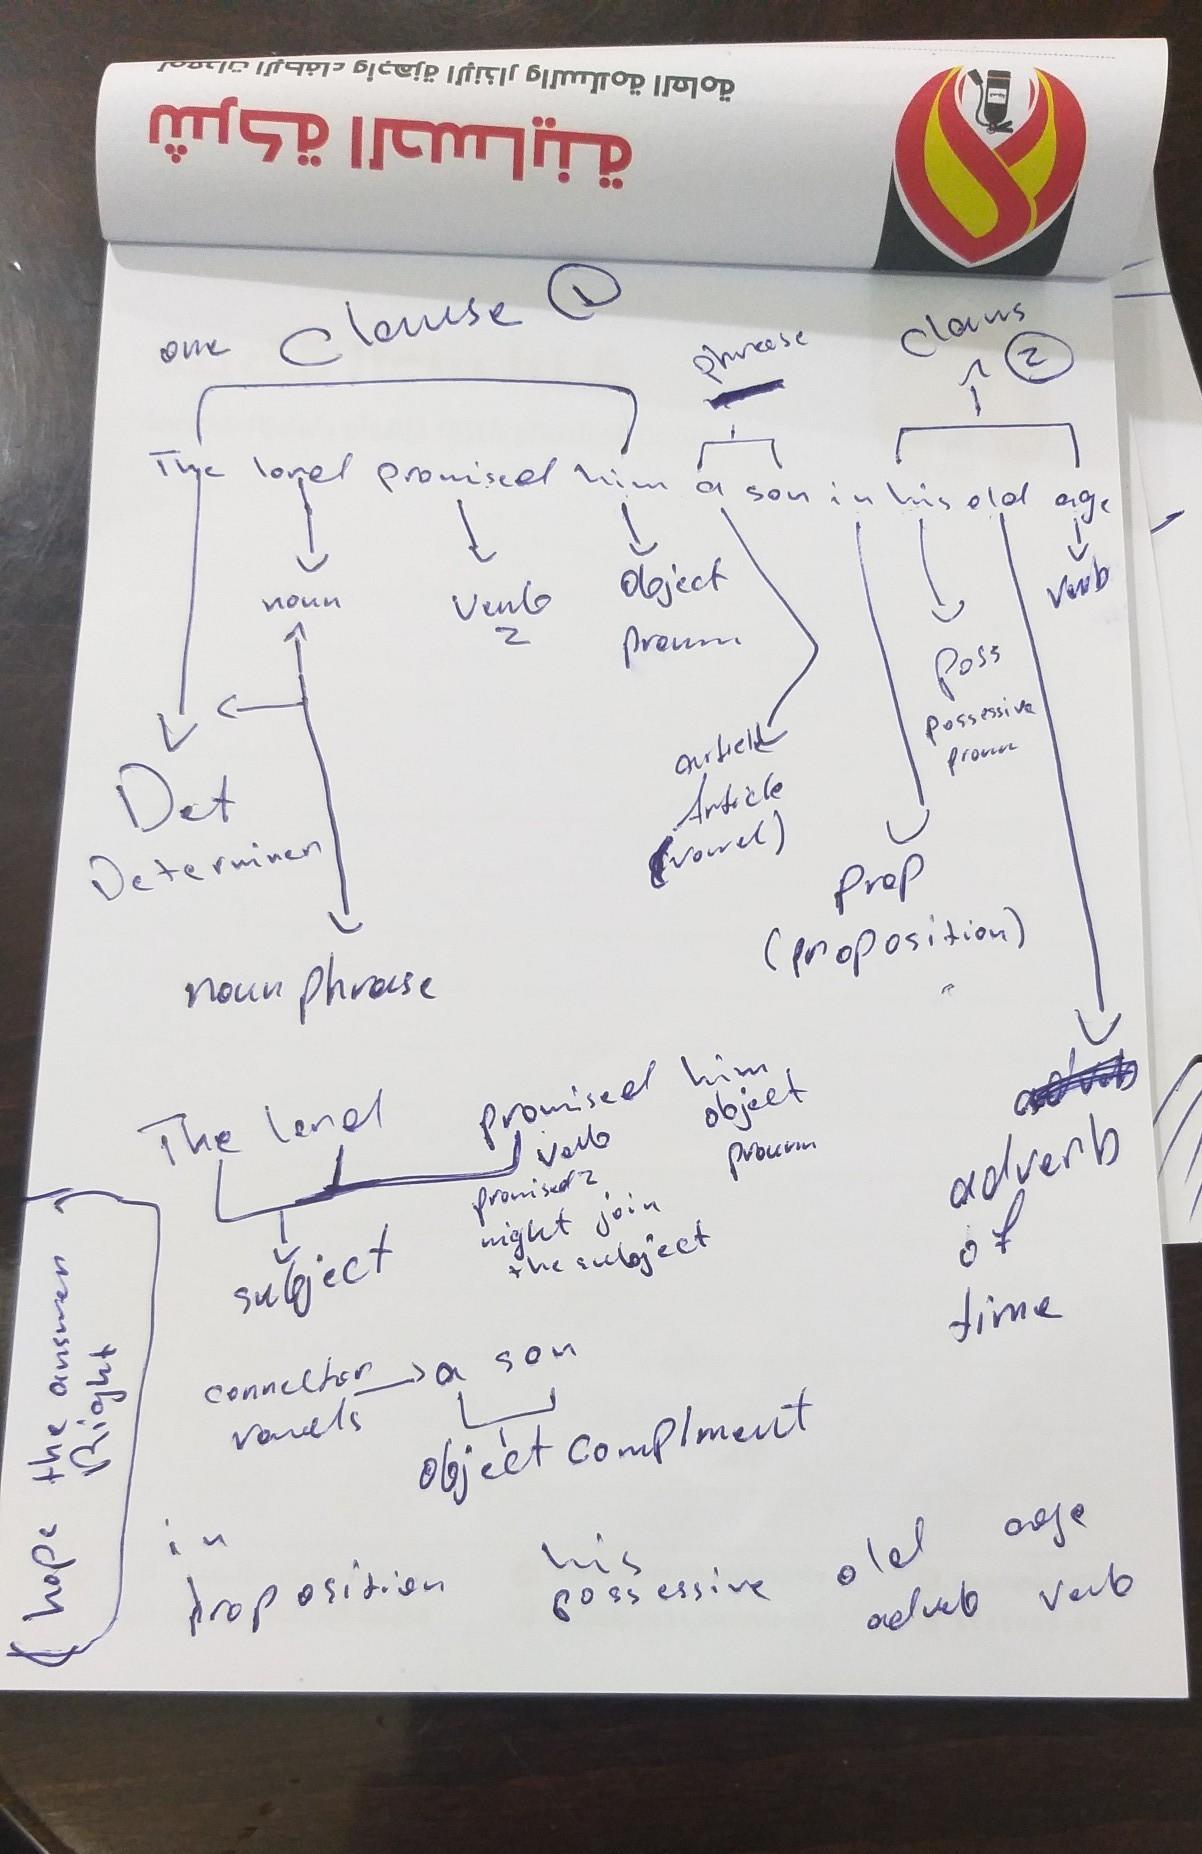 لمعدات الإطفاء وأجهزة الإنذار والسلامة العامة
شركة الحسانية
one Clause 1
phrease
Claus 2
The lord promised him a son in his old age
noun
verb 2
object pronun
verb
Poss
possessive
pronun
Det
Determiner
Article
(vowel)
prop
(proposition)
noun phrase
adverb
of
time
The lord promised him
verb
object
pronun
promised 2
might join
the subject
subject
connector
vowels
a son
object complment
in his old age
proposition possessive adverb verb
(hope the answer
Right